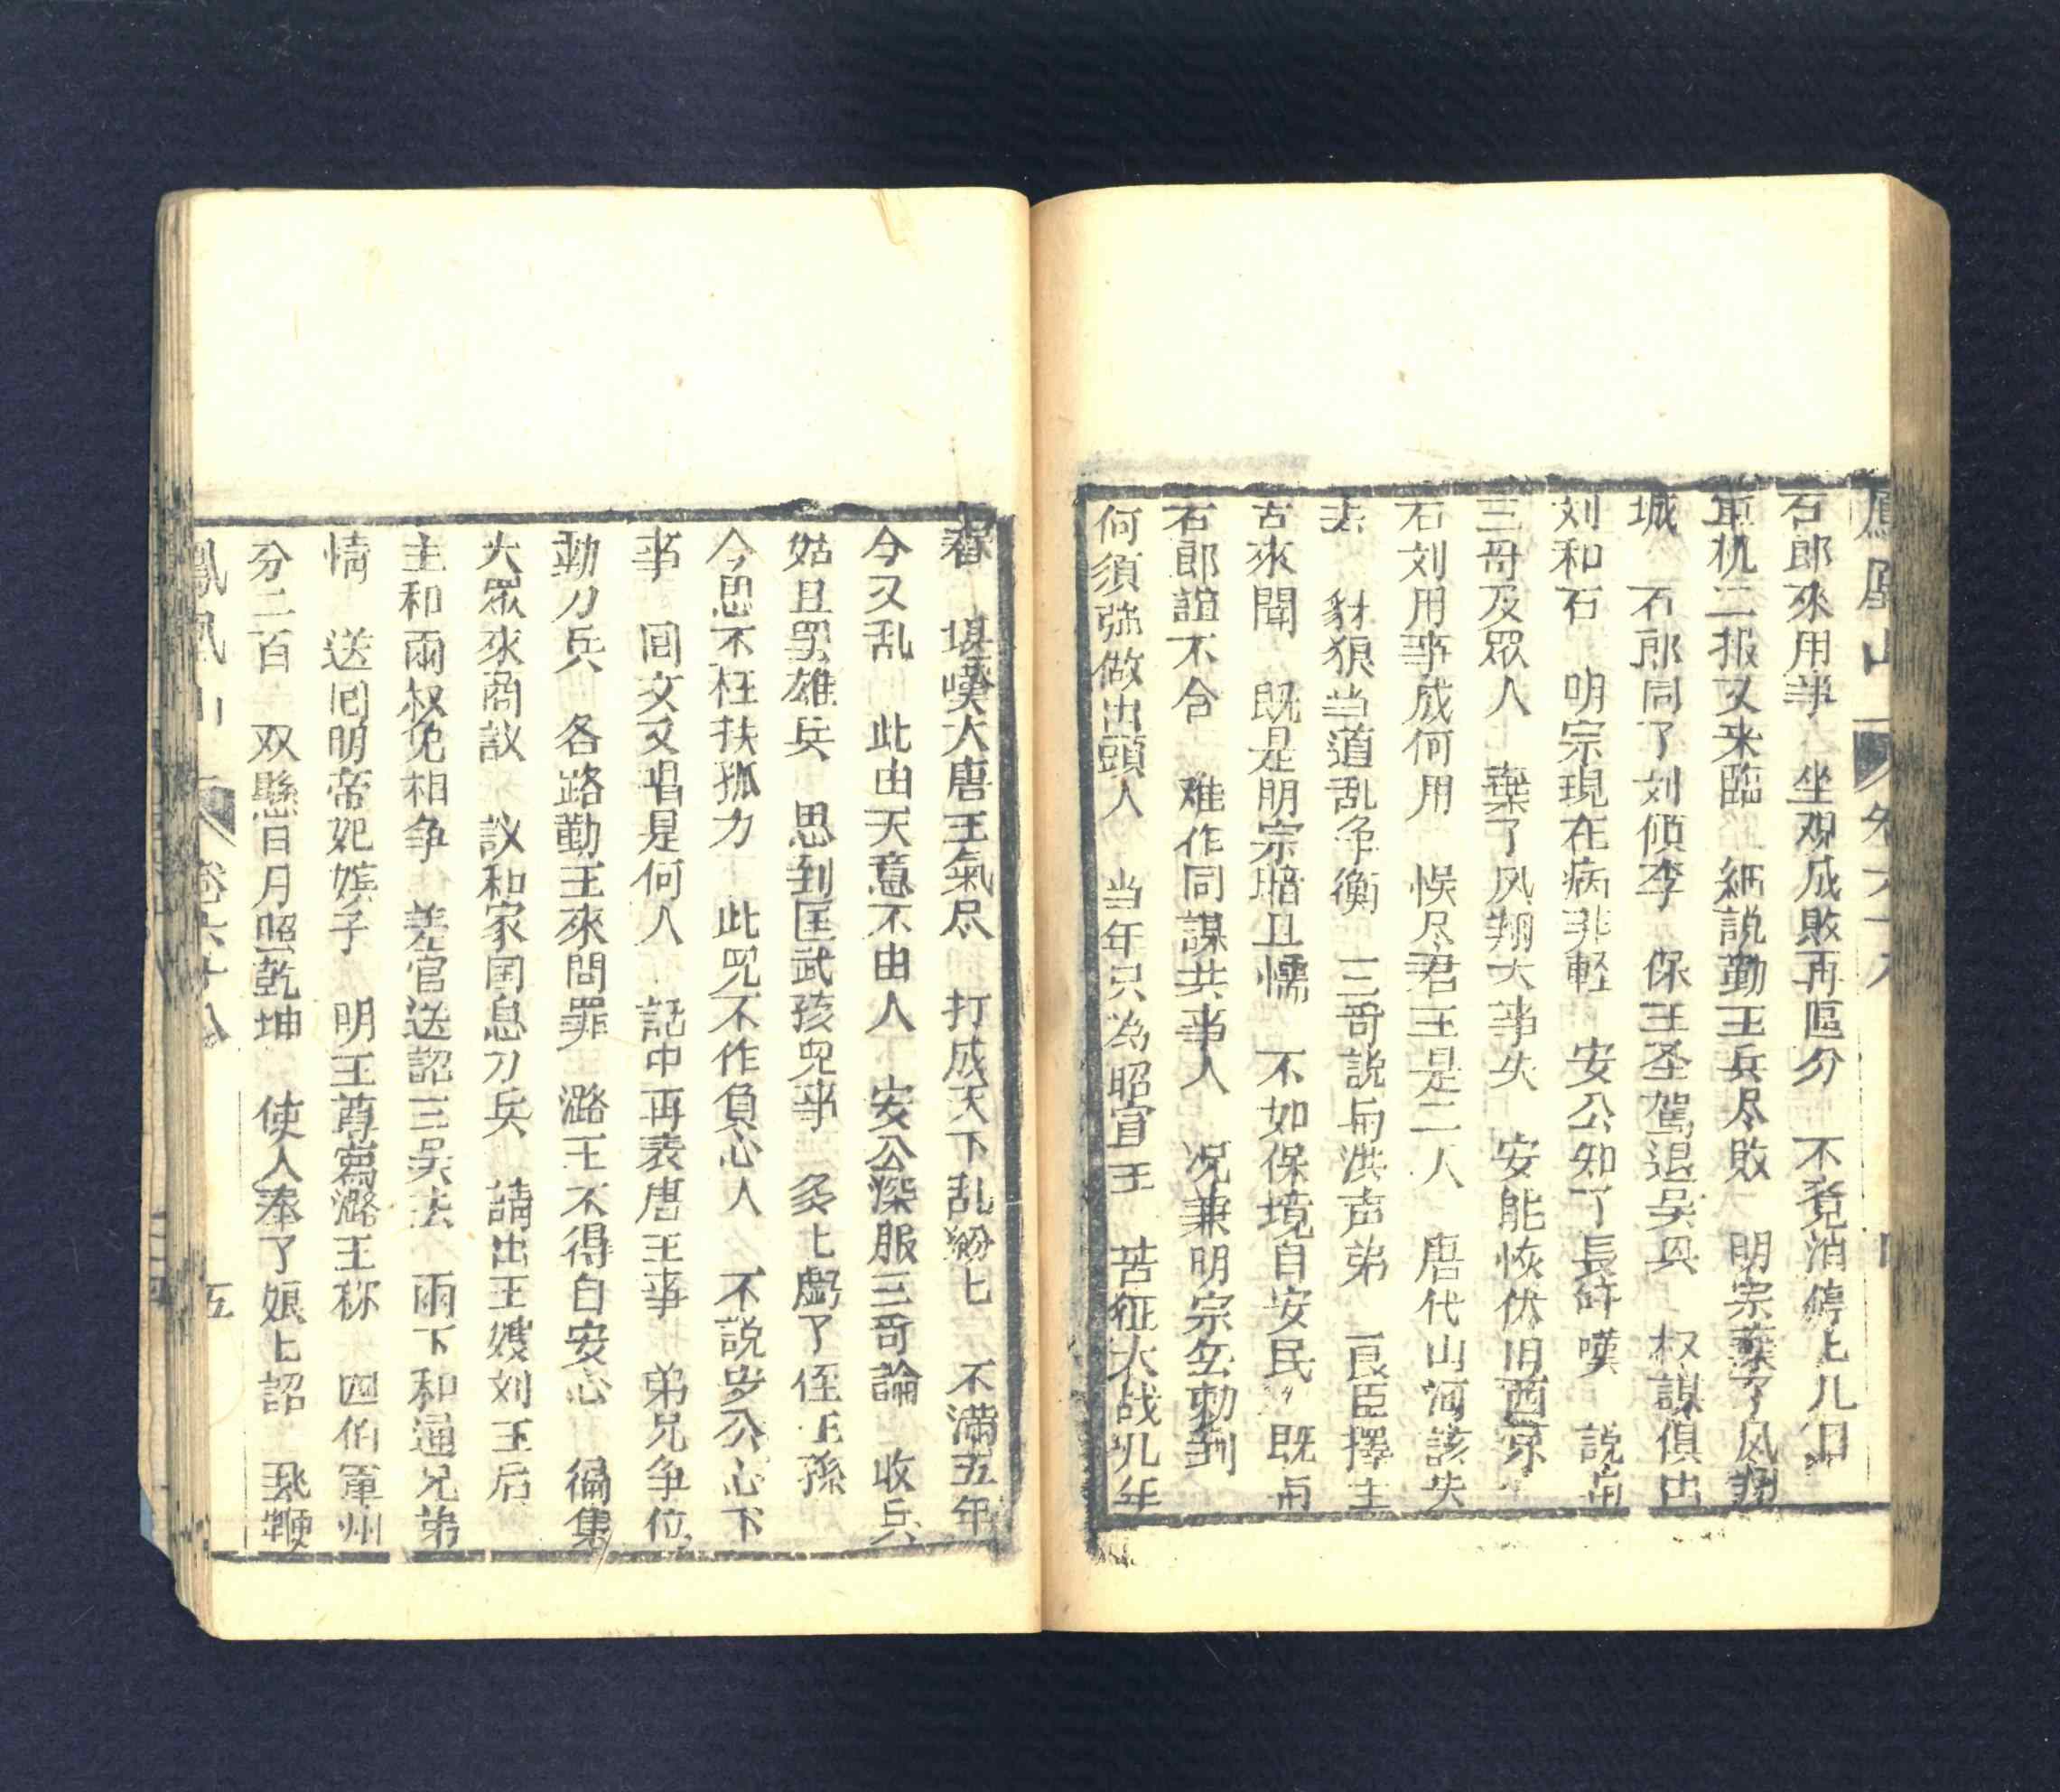 鳳凰山 卷六十八
石郎來用事 坐观成敗再區分 不覚消停上几日
軍机二报又来臨 細説勤王兵尽敗 明宗棄了风翔
城 石郎同了刘傾李 保王圣駕退吴兴 权謀俱出
刘和石 明宗現在病非軽 安公知了長吁嘆 説向
三哥及眾人 棄了风翔大事失 安能恢伏旧西京
石刘用事成何用 悞尽君王是二人 唐代山河該失
去 豺狼当道乱争衡 三哥説与洪声弟 良臣擇主
古來聞 既是明宗暗且懦 不如保境自安民 既与
石郎誼不合 难作同謀共事人 况兼明宗無勅到
何須強做出頭人 当年只為昭宣王 苦征大战几年
春 堪嘆大唐王氣尽 打成天下乱紛匕 不满五年
今又乱 此由天意不由人 安公深服三哥論 收兵
姑且罢雄兵 思到匡武孩児事 多匕虧了侄王孫
今思不枉扶孤力 此児不作負心人 不説安公心下
事 回文又唱是何人 話中再表唐王事 弟兄争位
動刀兵 各路勤王來問罪 潞王不得自安心 徧集
大眾來商议 议和家国息刀兵 請出王嫂刘王后
主和兩叔免相争 差官送詔三吴去 兩下和通兄弟
情 送回明帝妃嬪子 明王尊為潞王称 四伯軍州
分二百 双懸日月照乾坤 使人奉了娘匕詔 飛鞭
鳳凰山 卷六十八 五